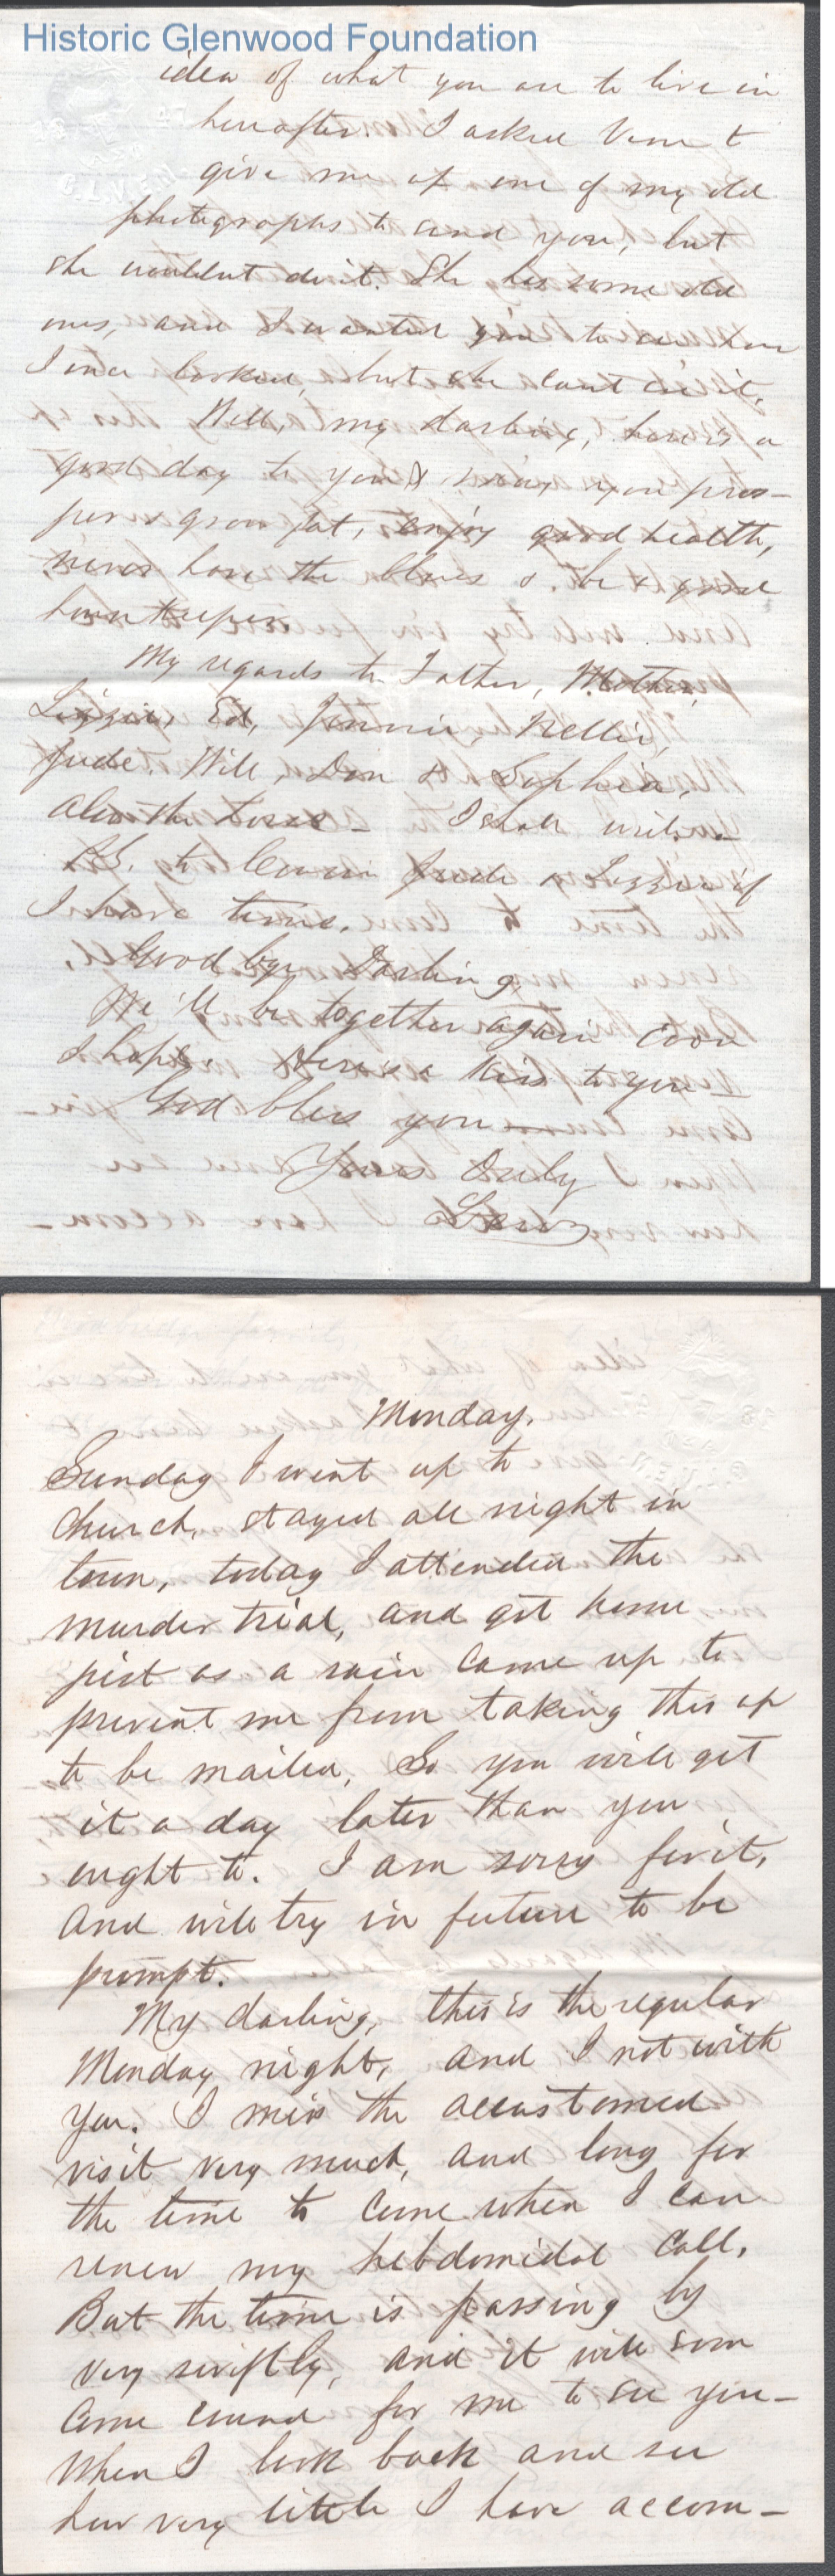 Historic Glenwood Foundation
idea of what you are to live in
hereafter. I asked Vene to
give me up one of my old
photographs to send you, but
she wouldnt do it. She has some old
ones, and I wanted you to see how
I once looked, but she cant see it.
Well, my darling, here is a
good day to you & may you pros-
per & grow fat, enjoy good health,
never have the blues & be a good
housekeeper.
My regards to Father, Mother,
Lizzie, Ed, Jennie, Nellie,
Jude, Will, Don & Sophia,
Also the
I shall write a
P.S. to Cousin Jude & Lizzie if
I have time.
Good bye Darling,
We'll be together again soon
I hope. Here's a kiss to you -
God bless you -
Yours Only
GLVEN
Monday.
Sunday I went up to
Church, stayed all night in
town, today I attended the
murder trial, and got home
just as a rain came up to
prevent me from taking this up
to be mailed, So you will get
it a day later than you
ought to. I am sorry for it,
and will try in future to be
prompt.
My darling, this is the regular
Monday night, and I not with
you. I miss the accustomed
visit very much, and long for
the time to come when I can
renew my hebdomidal call.
But the time is passing by
very swiftly, and it will soon
come round for me to see you -
When I look back and see
how very little I have accom-